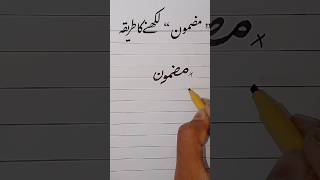 "مضمون" لکھنے کا طریقہ
مضمون